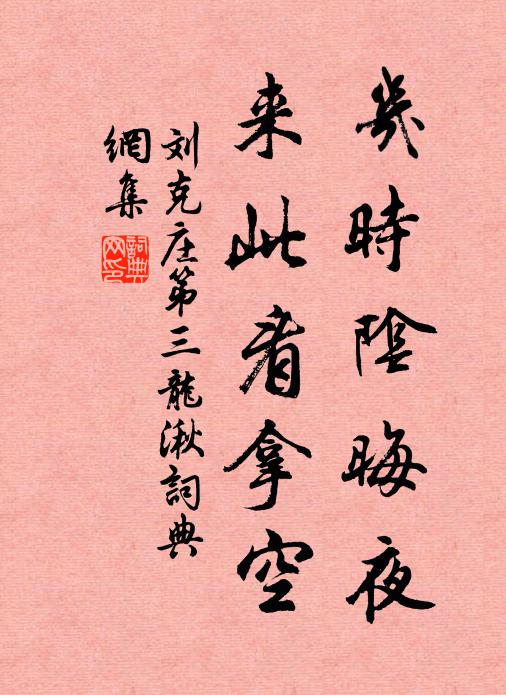 幾時陰晦夜
来此看拿空
刘克庄第三龍湫詞典
網集
詞典網印